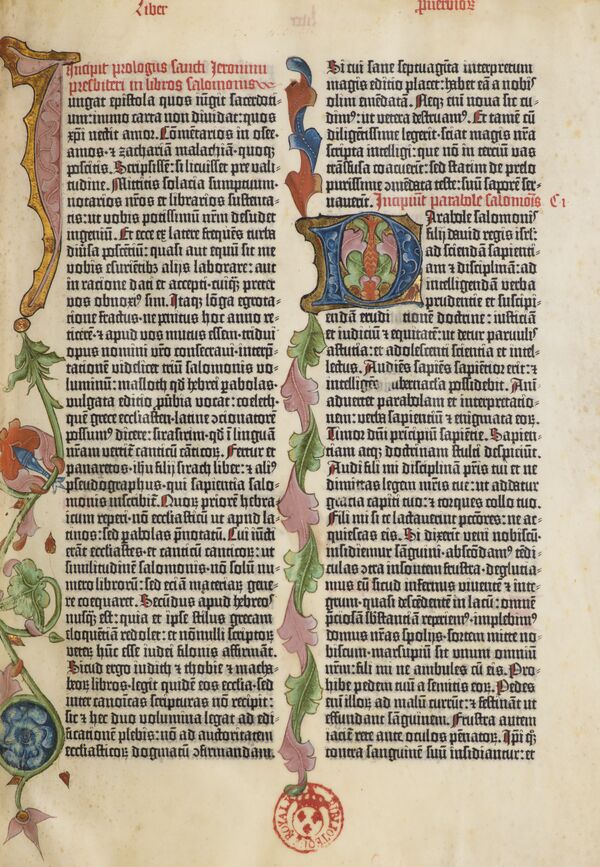 Liber
puerbiorũ
Incipit prologus sancti Jeronimi
presbiteri in libros salomonis
Iungat epistola quos iũgit sacerdoti-
um: immo carta non diuidat: quos
xp̃i nectit amor. Cõmentarios in osee.
amos. ⁊ zachariam malachiam. quoq;
poscitis. Scripsissem: si licuisset pre vali-
tudine. Mittitis solacia sumptuum.
notarios nr̃os et librarios sustenta-
tis: ut vobis potissimũ nr̃m desudet
ingeniũ. Et ecce ex latere frequẽs turba
diũsa poscẽtiũ: quasi aut equũ sit me
vobis esuriẽtibꝫ alijs laborare: aut
in ratione dati et accepti. cuiq̃; preter
vos obnoxiꝰ sim. Itaq; lõga egrota-
tione fractus. ne penitus hoc anno re-
ticerẽ. ⁊ apud vos mutus essem. tridui
opus nomini vr̃o consecraui. interp̃-
tationẽ videlicet triũ salomonis vo-
luminũ: masloth qd̃ hebrei pabolas.
vulgata editio ꝓuerbia vocat: coeleth.
quẽ grece ecclesiasten. latine ↄcionatorẽ
possumꝰ dicere: sirasirim. qd̃ ĩ linguã
nr̃am vertit̃ canticũ cãticoꝝ. Fertur et
panaretos. ihũ filij sirach liber: ⁊ aliꝰ
pseudographus. qui sapientia salo-
monis inscribit̃. Quoꝝ priorẽ hebra-
icum reperi. nõ ecclesiasticũ ut apud la-
tinos: sed pabolas p̃notatũ. Cui iũcti
erãt ecclesiastes. et canticũ canticoꝝ: ut
similitudinẽ salomonis. nõ solũ nu-
mero librorũ: sed eciã materiaꝝ gene-
re coequaret. Secũdus apud hebreos
nusq̃ est: quia et ipse stilus grecam
eloquẽtiã redolet: et nõnulli scriptoꝝ
veteꝝ hũc esse iudei filonis affirmãt.
Sicud ergo iudith ⁊ thobie ⁊ macha-
beoꝝ libros. legit quidẽ eos ecclesia. sed
inter canonicas scripturas nõ recipit:
sic ⁊ hec duo volumina legat ad edi-
ficationẽ plebis: nõ ad auctoritatem
ecclesiasticoꝝ dogmatũ ↄfirmandam.
Si cui sane septuagĩta interpretum
magis editio placet: habet eã a nobis
olim emẽdatã. Neq; em̃ noua sic cu-
dimꝰ: ut vetera destruamꝰ. Et tamẽ cũ
diligẽtissime legerit. sciat magis nr̃a
scripta intelligi: que nõ in terciũ vas
trãsfusa coacuerĩt: sed statim de prelo
purissime ↄmẽdata teste: suũ saporẽ ser-
uauerĩt. Incipiunt parabole salomõis C̃. I
Parabole salomonis
filij dauid regis isrl̃:
ad sciendã sapienti-
am ⁊ disciplinã: ad
intelligendã verba
prudentie et suscipi-
endã eruditionẽ doctrine: iusticiam
et iudiciũ ⁊ equitatẽ: ut detur paruulis
astutia: et adolescenti scientia et intel-
lectus. Audiẽs sapiẽs sapiẽtior erit: ⁊
intelligẽs gubernacula possidebit. Ani-
aduertet parabolam et interpretatio-
nem: verba sapienciũ ⁊ enigmata eoꝝ.
Timor dñi prĩcipiũ sapiẽtie. Sapien-
tiam atq; doctrinam stulti despiciunt.
Audi fili mi disciplinã pr̃is tui et ne
dimittas legem mr̃is tue: ut addatur
gracia capiti tuo: ⁊ torques collo tuo.
Fili mi si te lactauerint pctõres: ne ac-
quiescas eis. Si dixerĩt veni nobiscũ
insidiemur sãguini. abscõdamꝰ tẽdi-
culas ↄtra insontem frustra. deglucia-
mus eũ sicud infernus viuentẽ ⁊ inte-
grum. quasi descẽdentẽ in lacũ: omnẽ
p̃ciosam sb̃stantiam reperiemꝰ. implebimꝰ
domus nr̃as spolijs. sortem mitte no-
biscum. marsupiũ sit unum omniũ
nr̃m: fili mi ne ambules cũ eis. Pro-
hibe pedem tuũ a semitis eoꝝ. Pedes
em̃ illoꝝ ad malũ currũt: ⁊ festinãt ut
effundant sãguinem. Frustra autem
iacit̃ rete ante oculos pẽnatoꝝ. Ip̃i q̃
contra sanguinẽ suũ insidiantur: et
ROYALE
BIBLIOTEQ